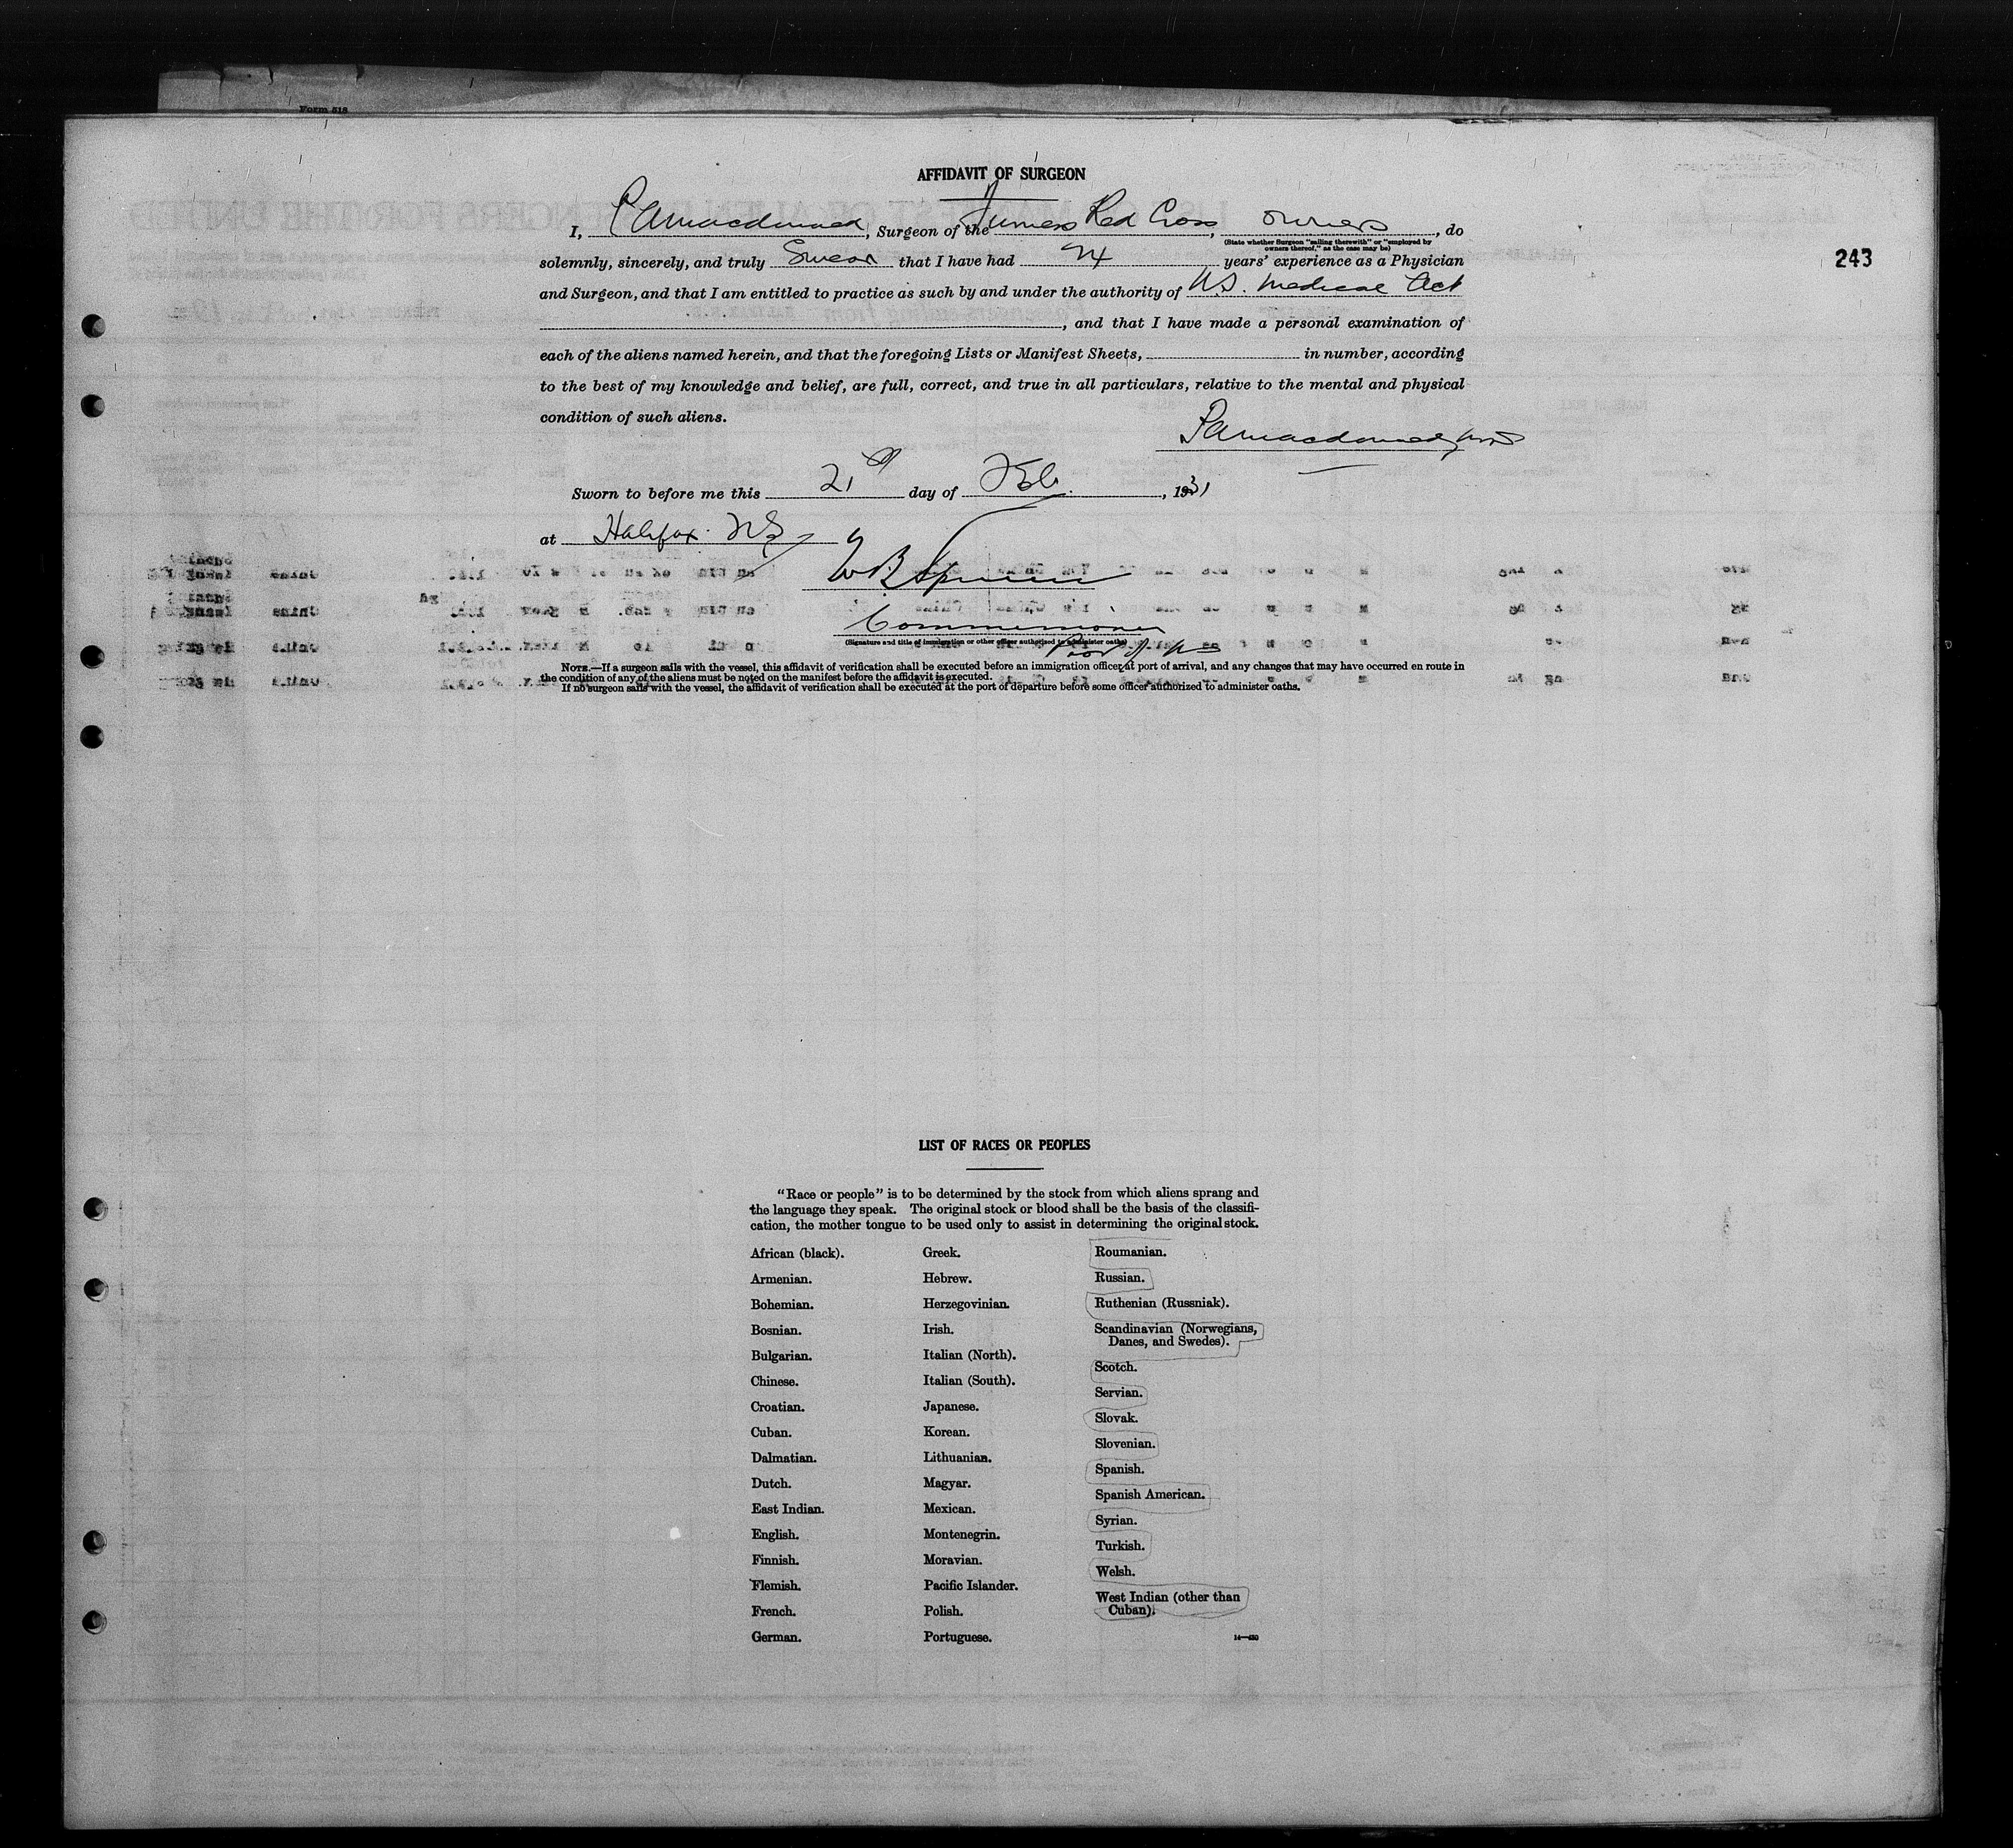 Form 518
AFFIDAVIT OF SURGEON
I, P A Macdonald, Surgeon of the Furness Red Cross, owners, do
(State whether Surgeon "sailing therewith" or "employed by
owners thereof," as the case may be)
243
solemnly, sincerely, and truly Swear that I have had 24 years' experience as a Physician
and Surgeon, and that I am entitled to practice as such by and under the authority of N.S. Medical Act
, and that I have made a personal examination of
each of the aliens named herein, and that the foregoing Lists or Manifest Sheets, in number, according
to the best of my knowledge and belief, are full, correct, and true in all particulars, relative to the mental and physical
condition of such aliens.
P A Macdonald, M D
Sworn to before me this 21st day of Feb., 1931
at Halifax N S
W B
Commissioner
(Signature and title of immigration or other officer authorized to administer oaths)
NOTE.—If a surgeon sails with the vessel, this affidavit of verification shall be executed before an immigration officer at port of arrival, and any changes that may have occurred en route in
the condition of any of the aliens must be noted on the manifest before the affidavit is executed.
If no surgeon sails with the vessel, the affidavit of verification shall be executed at the port of departure before some officer authorized to administer oaths.
LIST OF RACES OR PEOPLES
"Race or people" is to be determined by the stock from which aliens sprang and
the language they speak. The original stock or blood shall be the basis of the classifi-
cation, the mother tongue to be used only to assist in determining the original stock.
African (black).
Armenian.
Bohemian.
Bosnian.
Bulgarian.
Chinese.
Croatian.
Cuban.
Dalmatian.
Dutch.
East Indian.
English.
Finnish.
Flemish.
French.
German.
Greek.
Hebrew.
Herzegovinian.
Irish.
Italian (North).
Italian (South).
Japanese.
Korean.
Lithuanian.
Magyar.
Mexican.
Montenegrin.
Moravian.
Pacific Islander.
Polish.
Portuguese.
Roumanian.
Russian.
Ruthenian (Russniak).
Scandinavian (Norwegians,
Danes, and Swedes).
Scotch.
Servian.
Slovak.
Slovenian.
Spanish.
Spanish American.
Syrian.
Turkish.
Welsh.
West Indian (other than
Cuban).
14—430